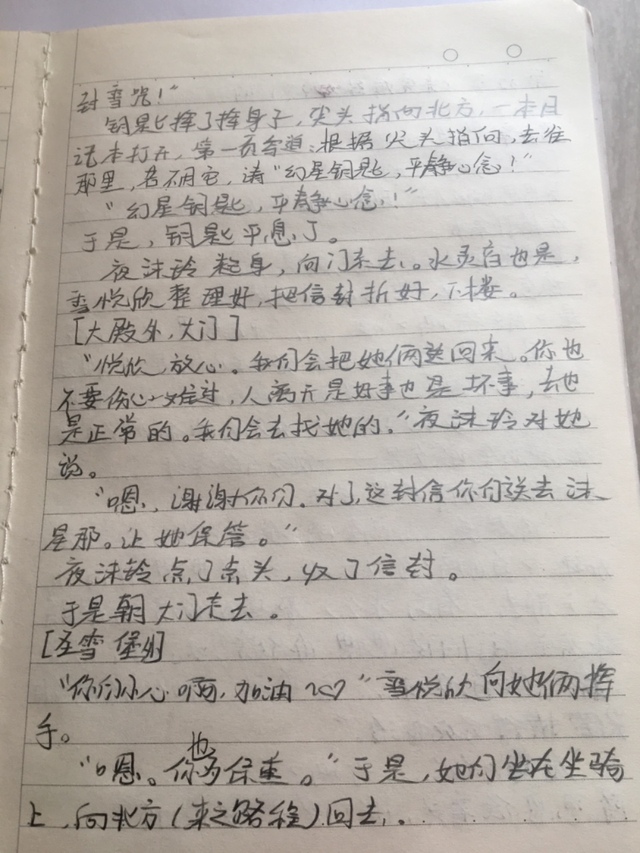 封雪咒！"
钥匙挥了挥身子，尖头指向北方，一本日
记本打开，第一页写道：根据尖头指向，去往
那里，若不用它，请"幻星钥匙，平静心念！"
"幻星钥匙，平静心念！"
于是，钥匙平息了。
夜沫玲起身，向门东去。水灵宫也是，
雪悦欣整理好，把信封折好，下楼。
[大殿外，大门]
"悦欣，放心。我们会把她俩送回来。你也
不要伤心难过，人离开是好事也是坏事，去也
是正常的。我们会去找她的。"夜沫玲对她
说。
"嗯，谢谢你们。对了，这封信你们送去沫
星那。让她保管。"
夜沫玲点了点头，收了信封。
于是朝大门走去。
[圣雪堡外]
"你们小心啊，加油~♡"雪悦欣向她俩挥
手。
"嗯。你也多保重。"于是，她们坐在坐骑
上，向北方（来之路程）回去。